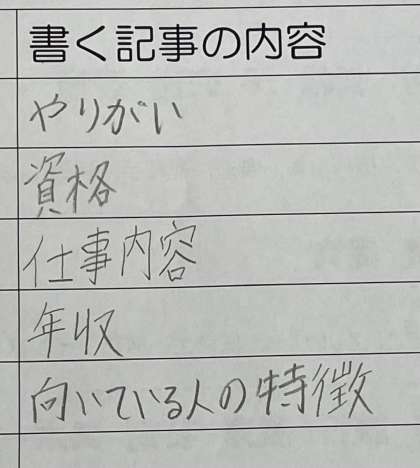 書く記事の内容
やりがい
資格
仕事内容
年収
向いている人の特徴